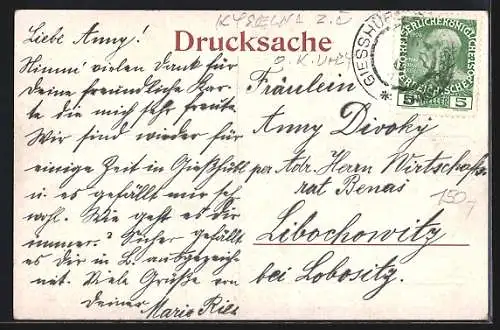 KYSELNA Z. Č
Drucksache
O. K. VARY
GIESSHÜ
KAISERLICHE KÖNIGLICHE
5 HELLER 5
Liebe Anny!
Nimm vielen Dank für
Deine freundliche Kar-
te die mich sehr freute
Wir sind wieder für
einige Zeit in Gießhübl
u. es gefällt mir sehr
wohl. Wie geht es dir
immer? Sicher gefällt
es Dir in L. ausgezeich-
net. Viele Grüße von
Deiner
Mario
Fräulein
Anny Divoky
per Adr. Herrn Wirtschafts-
rat Benas
Libochowitz
bei Lobositz.
150,-